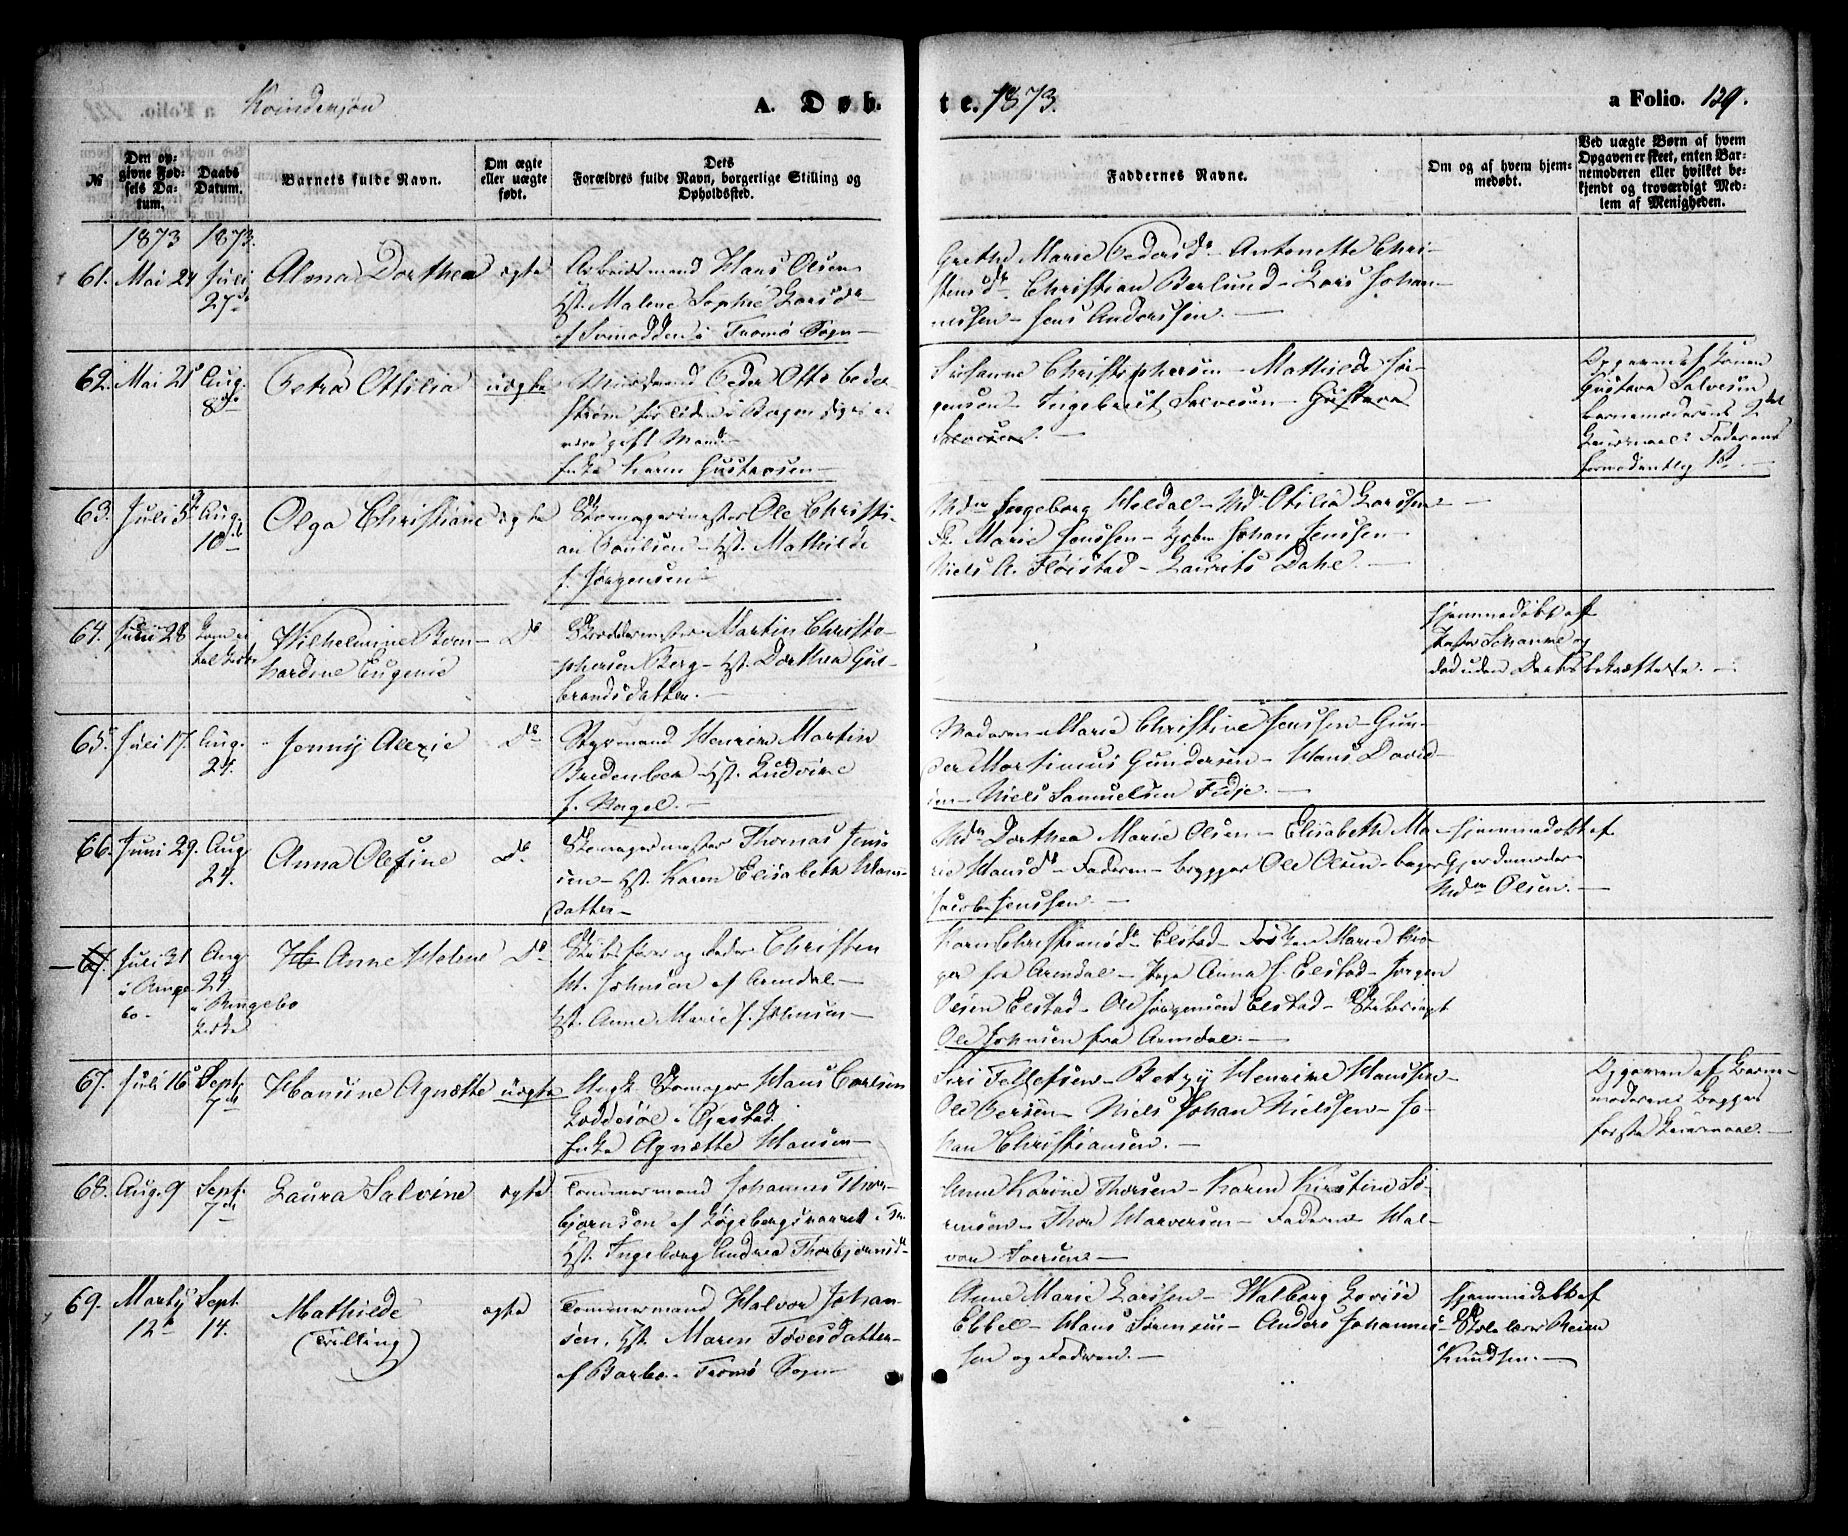 Kvindekjøn
A. Døb-
te. 1873.
a Folio. 139.
№
Den op-
givne Fød-
sels Da-
tum.
Daabs
Datum.
Barnets fulde Navn.
Om ægte
eller uægte
født.
Dets
Forældres fulde Navn, borgerlige Stilling og
Opholdssted.
Faddernes Navne.
Om og af hvem hjem-
medøbt.
Ved uægte Børn af hvem
Opgaven er skeet, enten Bar-
nemoderen eller hvilket be-
kjendt og troværdigt Med-
lem af Menigheden.
1873 1873.
61. Mai 24 Juli
27de
Alma Dorthea ægte
Arbeidsmand Hans Olsen
Hst. Malene Sophie Larsdr
af Svinodden i Tromø Sogn
Grethe Marie Pedersdr Antonette Chri-
stensdr Christian Berlund - Lars Johan-
nessen - Jens Anderssen.
62. Mai 21 Aug.
8de
Petra Ottilia uægte
Peder Otto Ceder
strøm for Tiden i Bergen
gift Mand
Pike Karen Gustavsen
Susanne Christophersen - Mathilde Jør-
gensen - Ingebret Salvesen - Gustava
Salvesen.
Opgaven af Konen
Gustava Salvesen
Barnemoderens 2det
Leiermaal Faderens
formodentlig 1ste
63. Juli 5 Aug.
10de
Olga Christiane ægte
Skomagermester Ole Christi-
an Poulsen - Hst. Mathilde
f. Jørgensen
Mdm Ingeborg Heldal - Md. Otilia Larssen
Fr. Marie Jenssen - Johan Jenssen
Niels A. Fløistad - Laurits Dahl.
64. Juli 28
Wilhelmine Bern-
hardine Eugenie
Do
Skreddermester Martin Christo-
phersen Berg - Hst. Dorthea Gul-
brandsdatter.
Hjemmedøbt af
Johanne og
død uden Daabsbekræftelse.
65. Juli 17. Aug.
24.
Jenny Alexie Do
Styrmand Henrik Martin
Bredenbek - Hst. Ludvine
f. Nagel.
Moderen - Marie Christine Jenssen - Gun-
der Martinius Gundersen - Hans David-
sen - Niels Samuelsen Fedje.
66. Juni 29. Aug
24.
Anna Olefine Do
Skomagermester Thomas Jens-
sen - Hst. Karen Elisabeth Hans-
datter
Mdm Dorthea Marie Olsen - Elisabeth Ma-
rie Hansdr - Faderen - Brygger Ole Olsen - Bager
Jacob Jenssen.
Hjemmedøbt af
Gjordemoder
Mdm Olsen.
67. Juli 31
i Ringe-
bo.
Aug
24
i Ringebo
Kirke
Anne Helene Do
Skibsfører og Reder Christen
H. Johnsen af Arendal
Hst. Anne Marie f. Johnsen
Karen Christiansdr Elstad - Frøken Marie
fra Arendal - Pige Anna J. Elstad - Jørgen
Olsen Elstad - Ole Jørgensen Elstad - Skibsrigt
Ole Johnsen fra Arendal.
67. Juli 16 Sept.
7de
Hansine Agnethe uægte
Ungk. Skomager Hans Carlsen
Loddesøl i Øiestad
Pike Agnethe Hansen
Siri Tellefsen - Betzy Henrine Hanssen
Ole Bersen - Niels Johan Nielssen - Jo-
han Christiansen.
Opgaven af Barne-
moderen Begges
første Leiermaal.
68. Aug. 9 Sept.
7de
Laura Salvine ægte
Tømmermand Johannes Thor-
bjørnsen af Løgebergsvarret i Tr.
Hst. Ingeborg Andrea Thorbjørnsdr
Anne Karine Thorsen - Karen Kirstine Sø-
rensen - Thor Halvorsen - Faderen - Hal-
vor Iversen
69. Marts Sept.
12te 14.
Mathilde
(Trilling)
ægte
Tømmermand Halvor Johan-
sen, Hst. Maren Tovesdatter
af Barbo - Tromø Sogn
Anne Marie Larssen - Walborg Lovise
Ebbell - Hans Sørensen - Anders Johannes-
sen og Faderen.
Hjemmedøbt af
Skolelærer Reier
Knudsen.